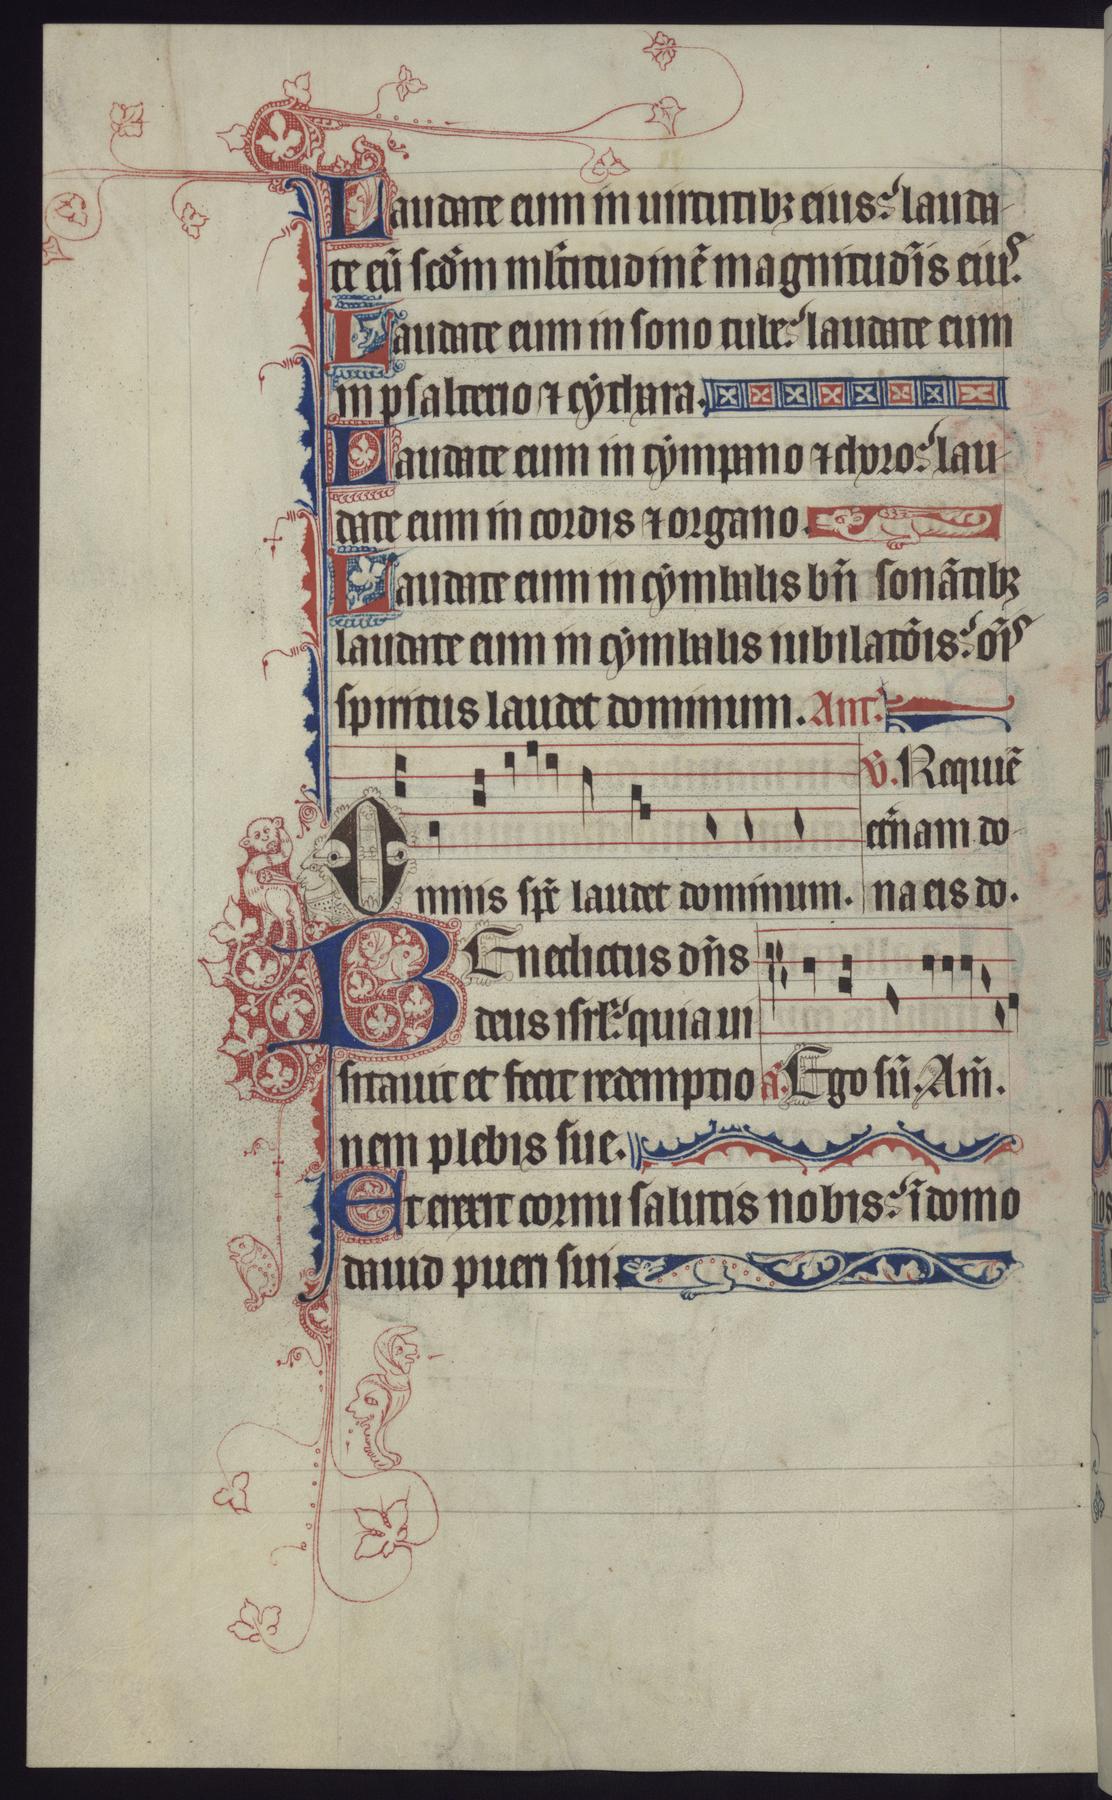 Laudate eum in uirtutibꝫ eius: lauda-
te eū scd̄m ml̄titudinē magnitud̄is eiuꝰ.
Laudate eum in sono tube: laudate eum
in psalterio ⁊ cẏthara.
Laudate eum in tẏmpano ⁊ choro: lau-
date eum in cordis ⁊ organo.
Laudate eum in cẏmbalis bn̄ sonātibꝫ
laudate eum in cẏmbalis iubilatōis: om̄s
spiritus laudet dominum. Ant.
V. Requiē
etn̄am do-
Omnis spc̄ laudet dominum. na eis do.
BEnedictus dn̄s
deus isrl̄: quia ui
sitauit et fecit redemptio a. Ego sū. Am̄.
nem plebis sue.
Et erexit cornu salutis nobis: ī domo
dauid pueri sui.